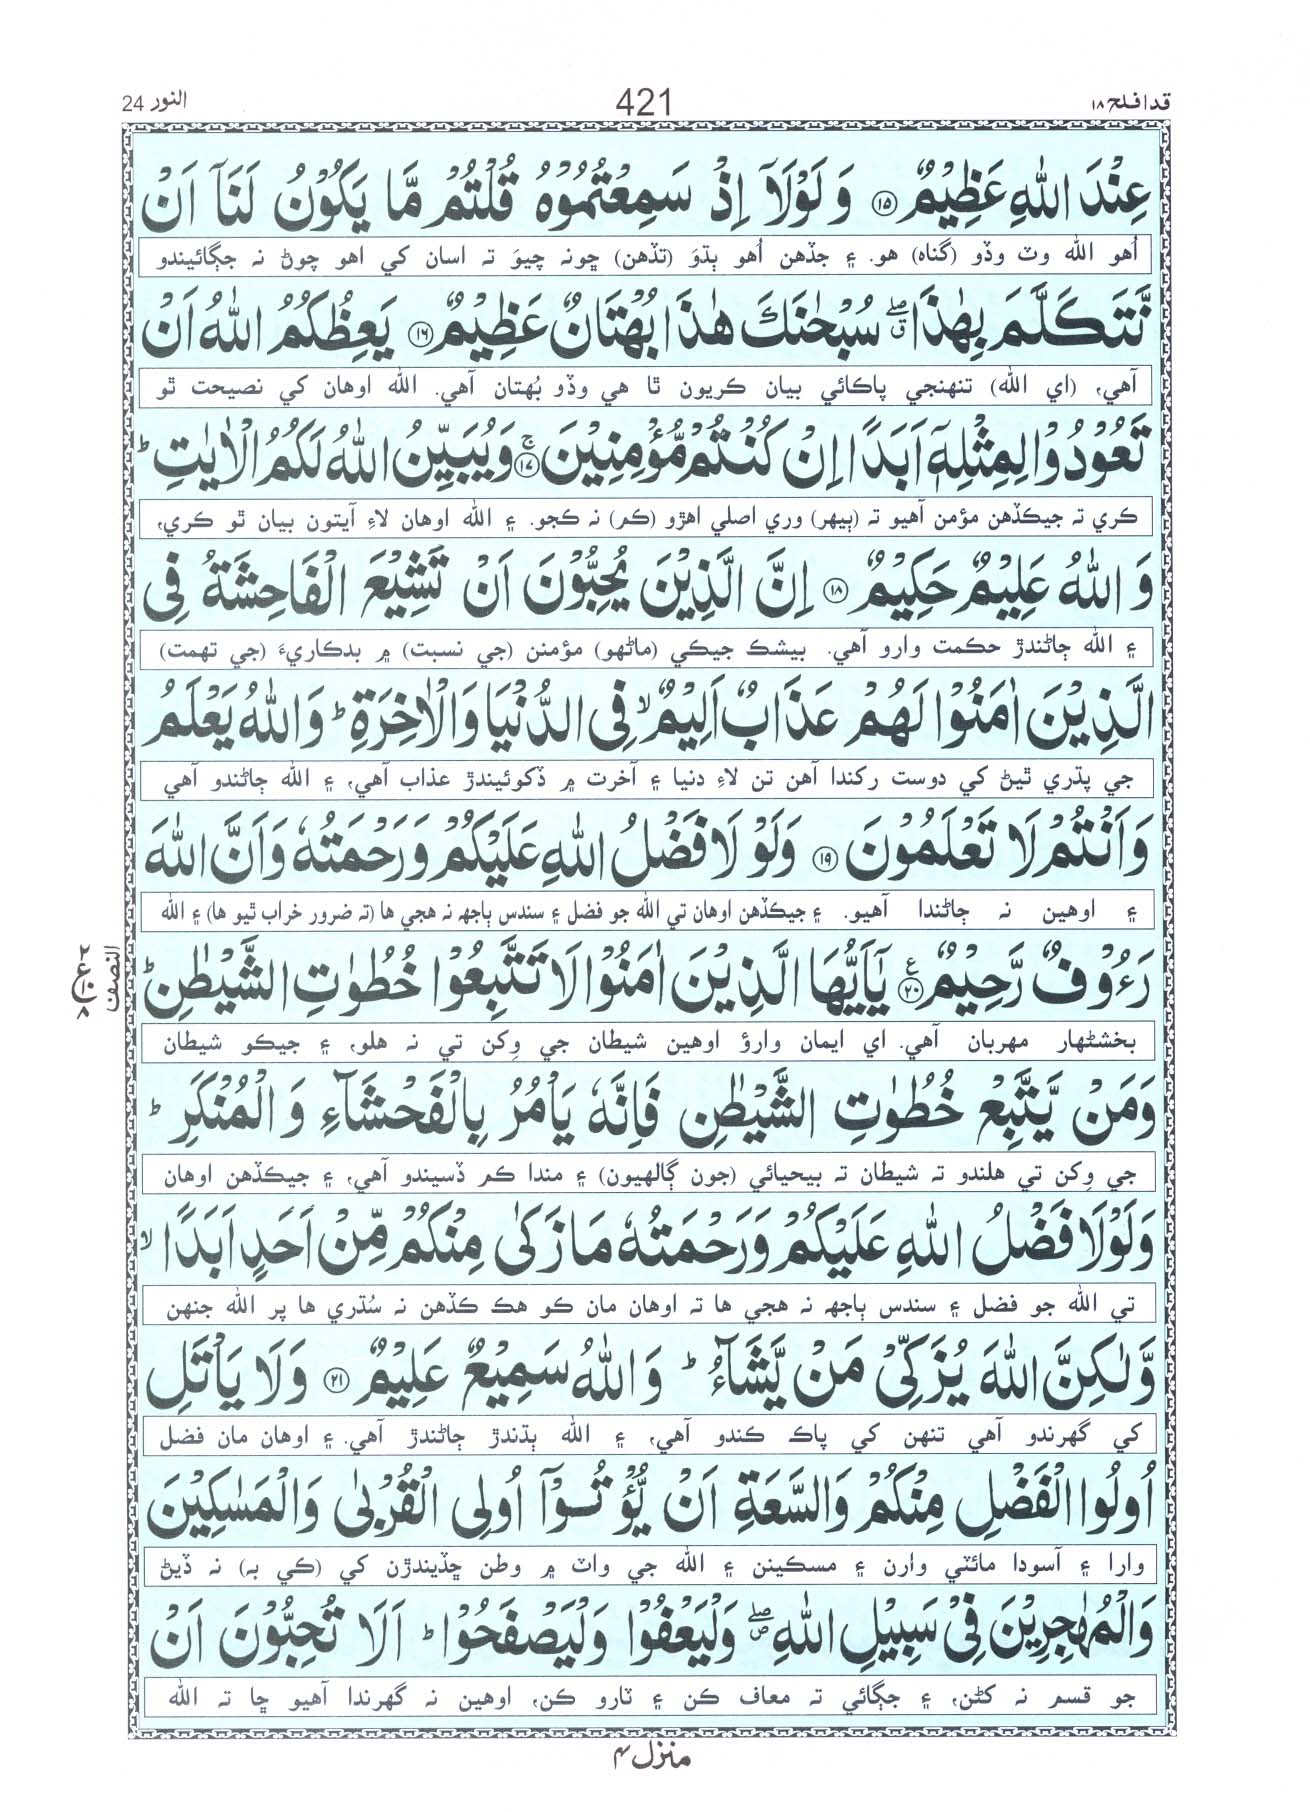 قد افلح ۱۸
421
النور 24
عِنْدَ اللّٰهِ عَظِیْمٌ ﴿۱۵﴾ وَ لَوْلَاۤ اِذْ سَمِعْتُمُوْهُ قُلْتُمْ مَّا یَكُوْنُ لَنَاۤ اَنْ
اُهو الله وٽ وڏو (گناه) هو. ۽ جڏهن اُهو ٻڌوَ (تڏهن) ڇونه چيوَ ته اسان کي اهو چوڻ نه جڳائيندو
نَّتَكَلَّمَ بِهٰذَا ۖۗ سُبْحٰنَكَ هٰذَا بُهْتَانٌ عَظِیْمٌ ﴿۱۶﴾ یَعِظُكُمُ اللّٰهُ اَنْ
آهي، (اي الله) تنهنجي پاڪائي بيان ڪريون ٿا هي وڏو بُهتان آهي. الله اوهان کي نصيحت ٿو
تَعُوْدُوْا لِمِثْلِهٖۤ اَبَدًا اِنْ كُنْتُمْ مُّؤْمِنِیْنَ ﴿۱۷﴾ۚ وَ یُبَیِّنُ اللّٰهُ لَكُمُ الْاٰیٰتِ ؕ
ڪري ته جيڪڏهن مؤمن آهيو ته (ٻيهر) وري اصلي اهڙو (ڪم) نه ڪجو. ۽ الله اوهان لاءِ آيتون بيان ٿو ڪري،
وَ اللّٰهُ عَلِیْمٌ حَكِیْمٌ ﴿۱۸﴾ اِنَّ الَّذِیْنَ یُحِبُّوْنَ اَنْ تَشِیْعَ الْفَاحِشَةُ فِی
۽ الله ڄاڻندڙ حڪمت وارو آهي. بيشڪ جيڪي (ماڻهو) مؤمنن (جي نسبت) ۾ بدڪاريءَ (جي تهمت)
الَّذِیْنَ اٰمَنُوْا لَهُمْ عَذَابٌ اَلِیْمٌ ۙ فِی الدُّنْیَا وَ الْاٰخِرَةِ ؕ وَ اللّٰهُ یَعْلَمُ
جي پڌري ٿيڻ کي دوست رکندا آهن تن لاءِ دنيا ۽ آخرت ۾ ڏکوئيندڙ عذاب آهي، ۽ الله ڄاڻندو آهي
وَ اَنْتُمْ لَا تَعْلَمُوْنَ ﴿۱۹﴾ وَ لَوْ لَا فَضْلُ اللّٰهِ عَلَیْكُمْ وَ رَحْمَتُهٗ وَ اَنَّ اللّٰهَ
۽ اوهين نه ڄاڻندا آهيو. ۽ جيڪڏهن اوهان تي الله جو فضل ۽ سندس ٻاجهه نه هجي ها (ته ضرور خراب ٿيو ها) ۽ الله
رَءُوْفٌ رَّحِیْمٌ ﴿۲۰﴾ع یٰۤاَیُّهَا الَّذِیْنَ اٰمَنُوْا لَا تَتَّبِعُوْا خُطُوٰتِ الشَّیْطٰنِ ؕ
النصف
۲ ع ۱۰ ۸
بخشڻهار مهربان آهي. اي ايمان وارؤ اوهين شيطان جي وِکن تي نه هلو، ۽ جيڪو شيطان
وَ مَنْ یَّتَّبِعْ خُطُوٰتِ الشَّیْطٰنِ فَاِنَّهٗ یَاْمُرُ بِالْفَحْشَآءِ وَ الْمُنْكَرِ ؕ
جي وِکن تي هلندو ته شيطان ته بيحيائي (جون ڳالهيون) ۽ مندا ڪم ڏسيندو آهي، ۽ جيڪڏهن اوهان
وَ لَوْ لَا فَضْلُ اللّٰهِ عَلَیْكُمْ وَ رَحْمَتُهٗ مَا زَكٰی مِنْكُمْ مِّنْ اَحَدٍ اَبَدًا ۙ
تي الله جو فضل ۽ سندس ٻاجهه نه هجي ها ته اوهان مان ڪو هڪ ڪڏهن نه سُڌري ها پر الله جنهن
وَّ لٰكِنَّ اللّٰهَ یُزَكِّیْ مَنْ یَّشَآءُ ؕ وَ اللّٰهُ سَمِیْعٌ عَلِیْمٌ ﴿۲۱﴾ وَ لَا یَاْتَلِ
کي گهرندو آهي تنهن کي پاڪ ڪندو آهي، ۽ الله ٻڌندڙ ڄاڻندڙ آهي. ۽ اوهان مان فضل
اُولُوا الْفَضْلِ مِنْكُمْ وَ السَّعَةِ اَنْ یُّؤْتُوْۤا اُولِی الْقُرْبٰی وَ الْمَسٰكِیْنَ
وارا ۽ آسودا مائٽي وارن ۽ مسڪينن ۽ الله جي واٽ ۾ وطن ڇڏيندڙن کي (ڪي به) نه ڏيڻ
وَ الْمُهٰجِرِیْنَ فِیْ سَبِیْلِ اللّٰهِ ۪ۖ وَ لْیَعْفُوْا وَ لْیَصْفَحُوْا ؕ اَلَا تُحِبُّوْنَ اَنْ
جو قسم نه کڻن، ۽ جڳائي ته معاف ڪن ۽ ٽارو ڪن، اوهين نه گهرندا آهيو ڇا ته الله
منزل ۴